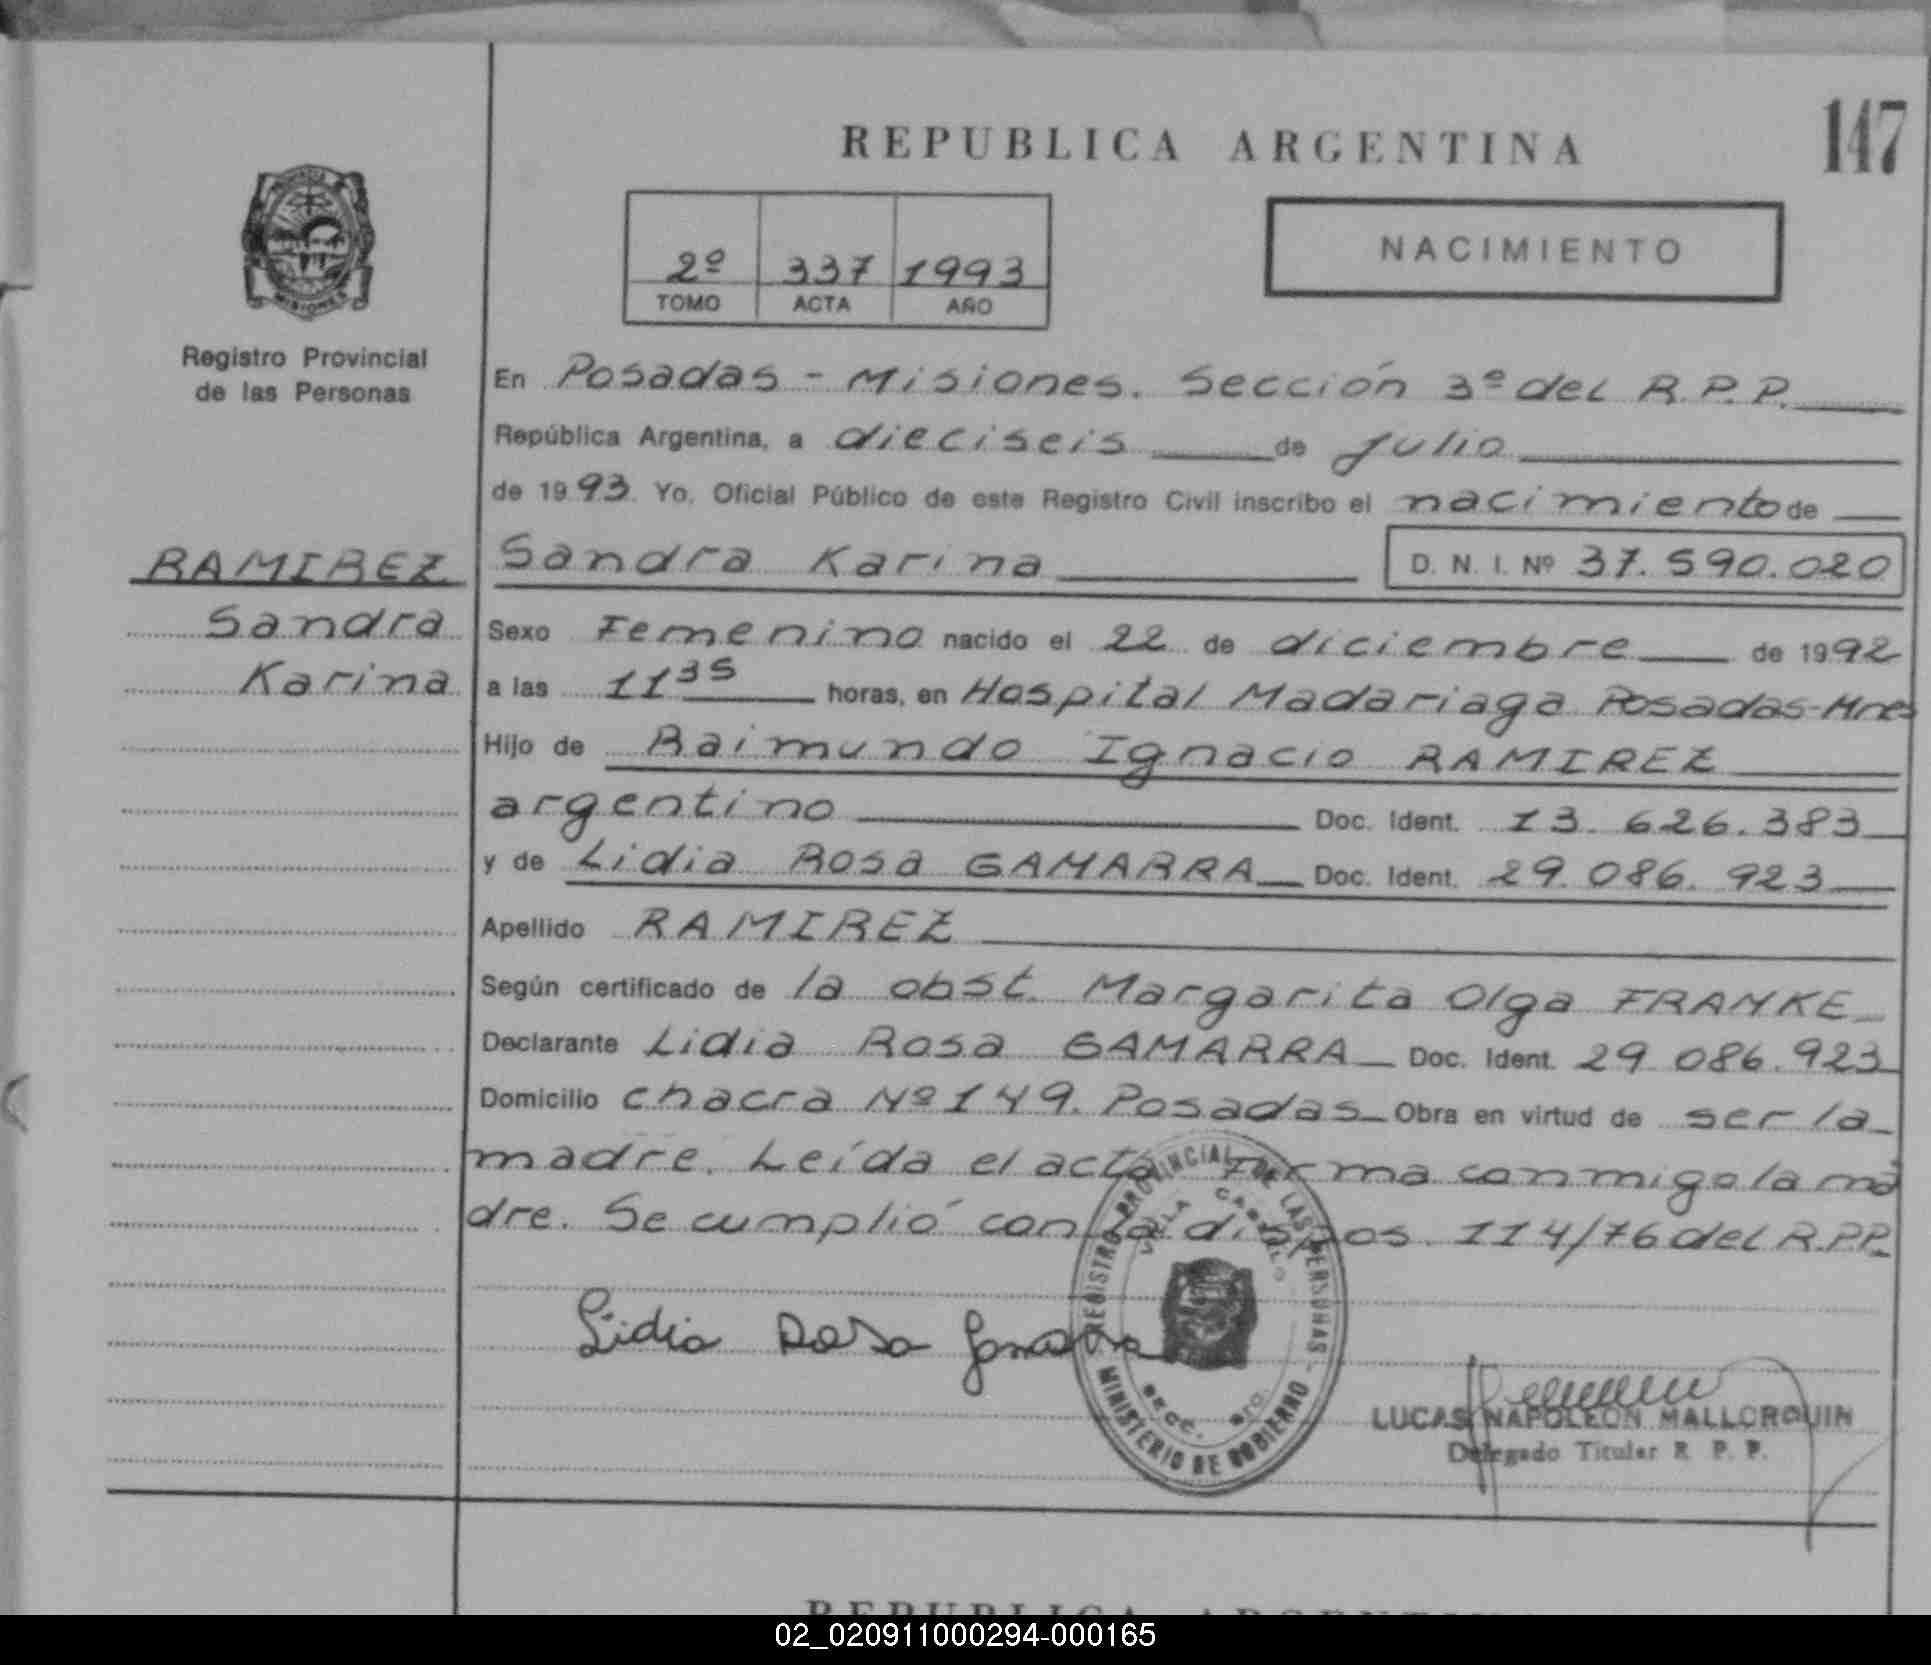 REPUBLICA ARGENTINA
147
2º 337 1993
TOMO ACTA AÑO
NACIMIENTO
MISIONES
Registro Provincial
de las Personas
En Posadas - Misiones. Sección 3ª del R.P.P.
República Argentina, a dieciseis de Julio
de 1993. Yo, Oficial Público de este Registro Civil inscribo el nacimiento de
RAMIREZ
Sandra
Karina
Sandra Karina D. N. I. Nº 37.590.020
Sexo Femenino nacido el 22 de diciembre de 1992
a las 11 35 horas, en Hospital Madariaga Posadas-Mnes
Hijo de Raimundo Ignacio RAMIREZ
argentino Doc. Ident. 13.626.383
y de Lidia Rosa GAMARRA Doc. Ident. 29.086.923
Apellido RAMIREZ
Según certificado de la obst. Margarita Olga FRANKE
Declarante Lidia Rosa GAMARRA Doc. Ident. 29.086.923
Domicilio chacra Nº 149. Posadas Obra en virtud de ser la
madre. Leída el acta Firma conmigo la ma
dre. Se cumplió con la dispos. 114/76 del R.P.P.
REGISTRO PROVINCIAL DE LAS PERSONAS - MINISTERIO DE GOBIERNO
VILLA CABELLO
Lidia Rosa Gamarra
LUCAS NAPOLEON MALLORQUIN
Delegado Titular R. P. P.
REPUBLICA ARGENTINA
02_020911000294-000165